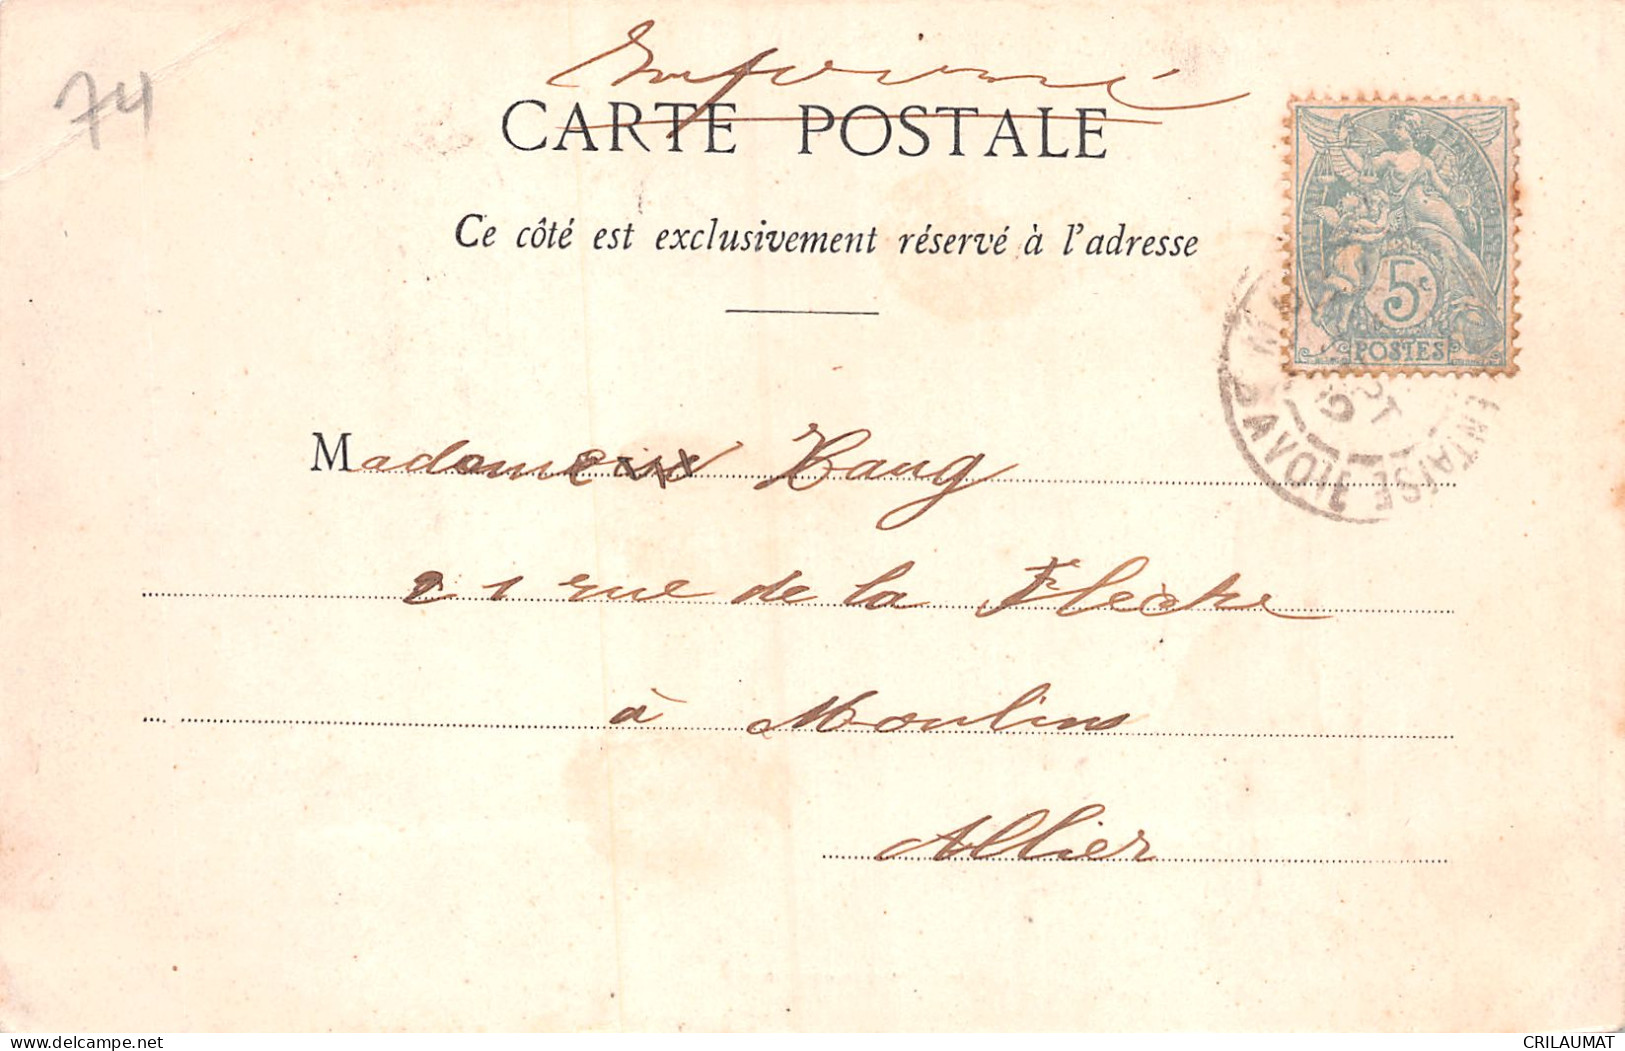 74
Imprimé
CARTE POSTALE
Ce côté est exclusivement réservé à l'adresse
5c
POSTES
ENTAISE
SAVOIE
Madame Haug
21 rue de la Flèche
à Moulins
Allier
www.delcampe.net
CRILAUMAT